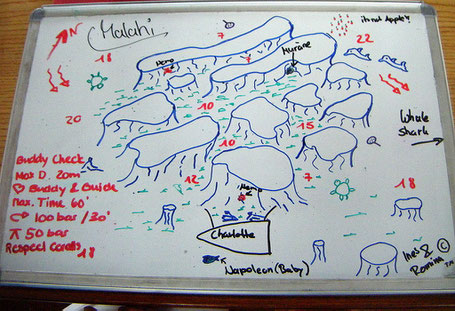 Malahi
It's not Apple's
18
7
7
22
Nemo
Murane
20
10
15
Whale
shark
10
Buddy Check
Max D. 20m
♡ Buddy & Guide
Max. Time 60'
100 bar / 30'
50 bar
Respect Corals
12
7
18
18
Nemo
Charlotte
Napoleon (Baby)
Ines &
Romina ™
©
N